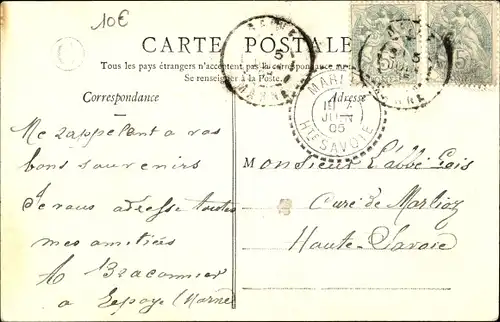 10€
CARTE POSTALE
Tous les pays étrangers n'acceptent pas la correspondance au
Se renseigner à la Poste.
Correspondance
Adresse
MARNE
MARLIOZ
JUIN
05
HTE SAVOIE
MARNE
Me rappelant a vos
bons souvenirs
Je vous adresse toutes
mes amitiées
A Braconnier
a Lepoye (Marne)
Monsieur L'abbé
Curé de Marlioz
Haute-Savoie